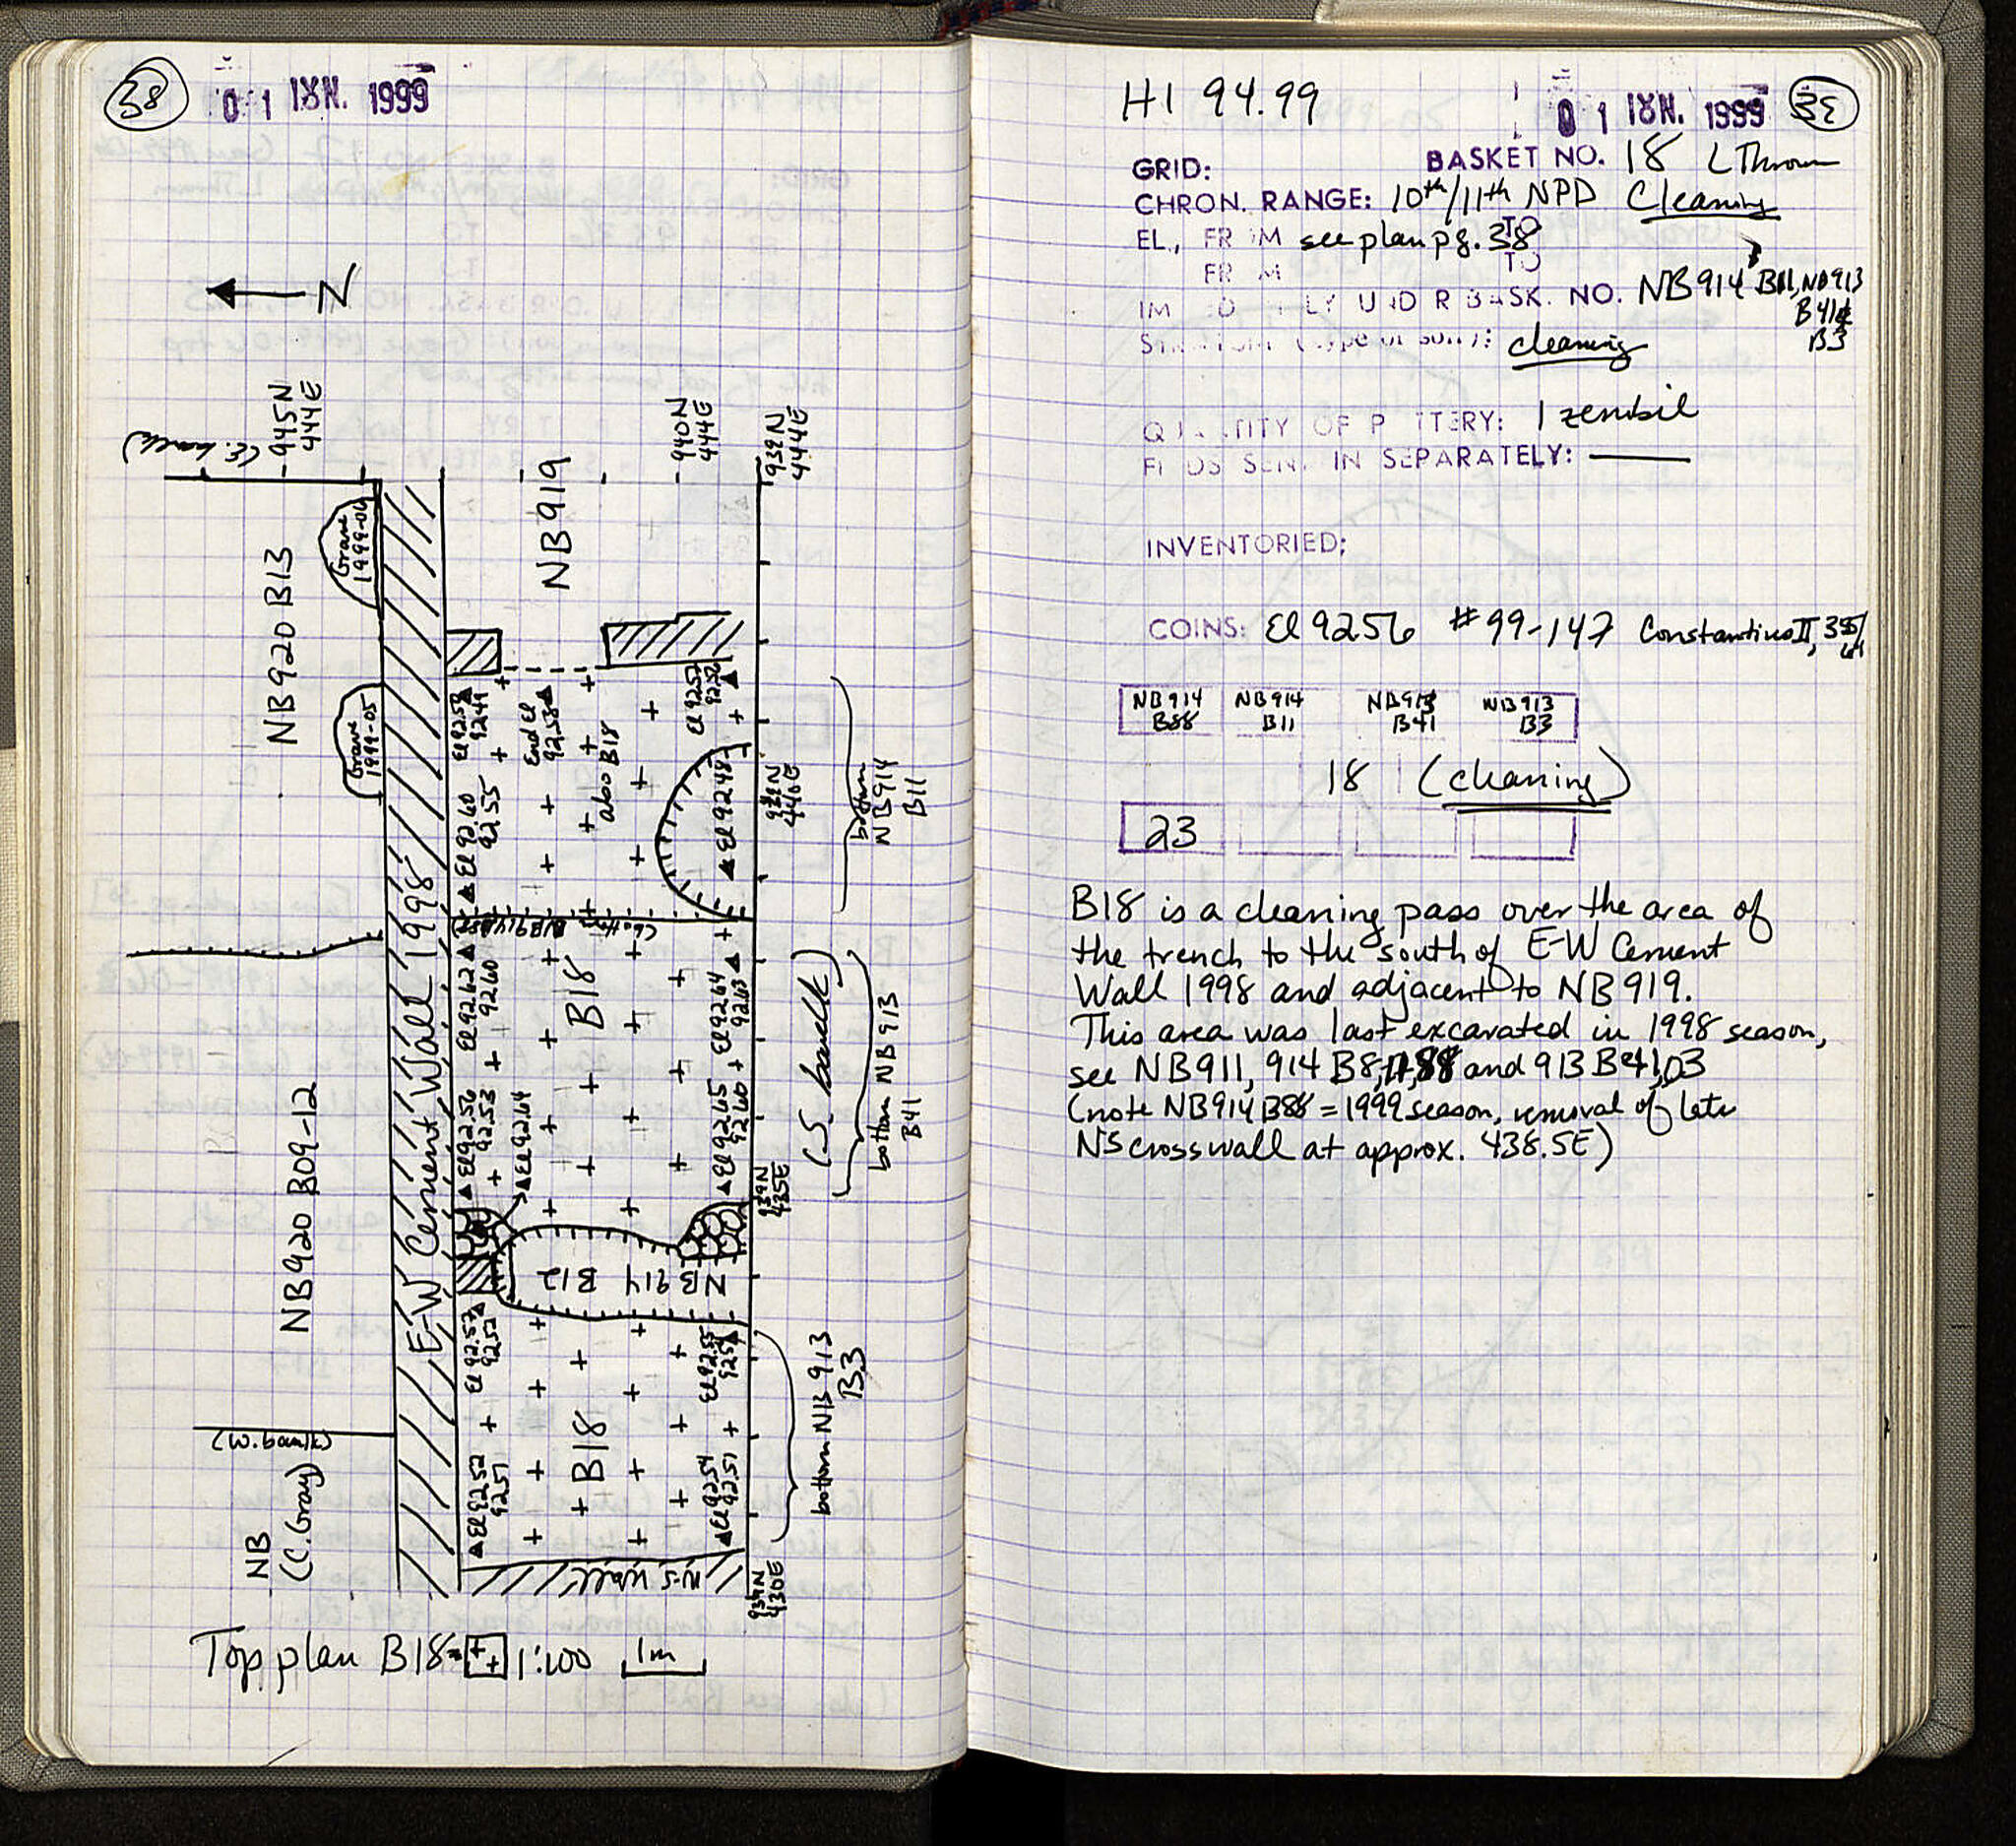 38
01 ΙΟΥΝ. 1999
N
(E. baulk)
945N
444E
940N
444E
939N
444E
NB920 B13
Grave
1999-06
NB919
Grave
1999-05
El 92.58
92.49
End El
92.53
El 92.52
92.52
also B18
El 92.60
92.55
El 92.48
939N
440E
bottom
NB914
B11
E-W Cement Wall 1998
El 92.62
92.60
B18
El 92.64
92.63
(S. baulk)
bottom NB913
B41
NB920 B09-12
El 92.56
92.53
El 92.64
El 92.65
92.60
939N
435E
NB 914 B12
El 92.57
92.52
El 92.55
92.51
bottom NB 913
B.3
(W. baulk)
NB
(C. Gray)
El 92.52
92.51
B18
El 92.54
92.51
N-S Wall
939N
430E
Top plan B18= ++ 1:100 1m
H1 94.99
01 ΙΟΥΝ. 1999
GRID: BASKET NO. 18 L Thrown
CHRON. RANGE: 10th/11th NPD Cleaning
EL., FROM see plan pg. 38 TO
FROM TO
BASK. NO. NB914 B11, NB913
B41
B3
cleaning
QUANTITY OF POTTERY: 1 zembil
FINDS SENT IN SEPARATELY: —
INVENTORIED:
COINS: El 92.56 #99-147 Constantius II,
NB914 NB914 NB913 NB913
B88 B11 B41 B3
18 (cleaning)
23
B18 is a cleaning pass over the area of
the trench to the south of E-W Cement
Wall 1998 and adjacent to NB919.
This area was last excavated in 1998 season,
see NB911, 914 B8, 11, 88 and 913 B41, 03
(note NB914 B88 = 1999 season, removal of late
NS crosswall at approx. 438.5E)